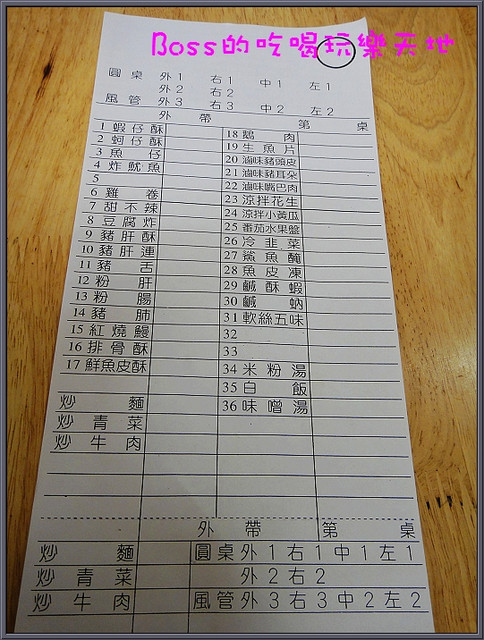 Boss的吃喝玩樂天地
圓桌 外1 右1 中1 左1
外2 右2
風管 外3 右3 中2 左2
外帶 第 桌
1 蝦仔酥 18 鵝肉
2 蚵仔酥 19 生魚片
3 魚仔 20 滷味豬頭皮
4 炸魷魚 21 滷味豬耳朵
5 22 滷味嘴巴肉
6 雞卷 23 涼拌花生
7 甜不辣 24 涼拌小黃瓜
8 豆腐炸 25 番茄水果盤
9 豬肝酥 26 冷韭菜
10 豬肝連 27 鯊魚醃
11 豬舌 28 魚皮凍
12 粉肝 29 鹹酥蝦
13 粉腸 30 鹹蚋
14 豬肺 31 軟絲五味
15 紅燒鰻 32
16 排骨酥 33
17 鮮魚皮酥 34 米粉湯
35 白飯
炒麵 36 味噌湯
炒青菜
炒牛肉
外帶 第 桌
炒麵 圓桌外1右1中1左1
炒青菜 外2右2
炒牛肉 風管外3右3中2左2